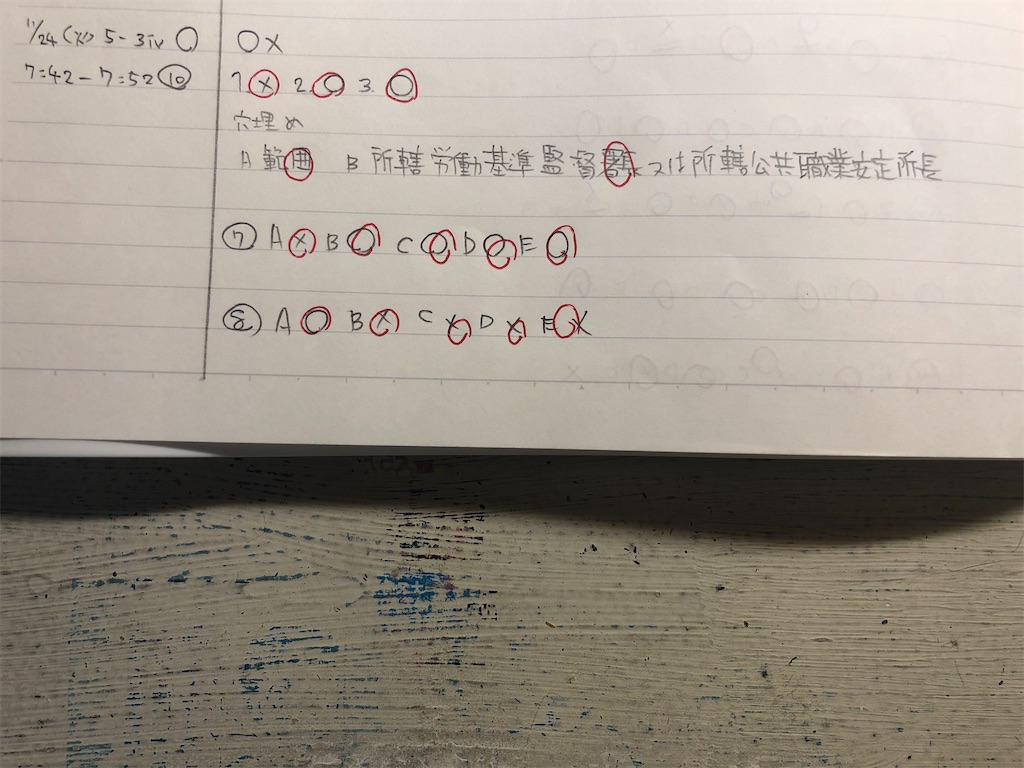 11/24 (火) 5-3iv ○
7:42-7:52 ⑩
○×
1. × 2. ○ 3. ○
穴埋め
A 範囲 B 所轄労働基準監督署長又は所轄公共職業安定所長
⑦ A × B ○ C ○ D ○ E ○
⑧ A ○ B × C × D × E ×